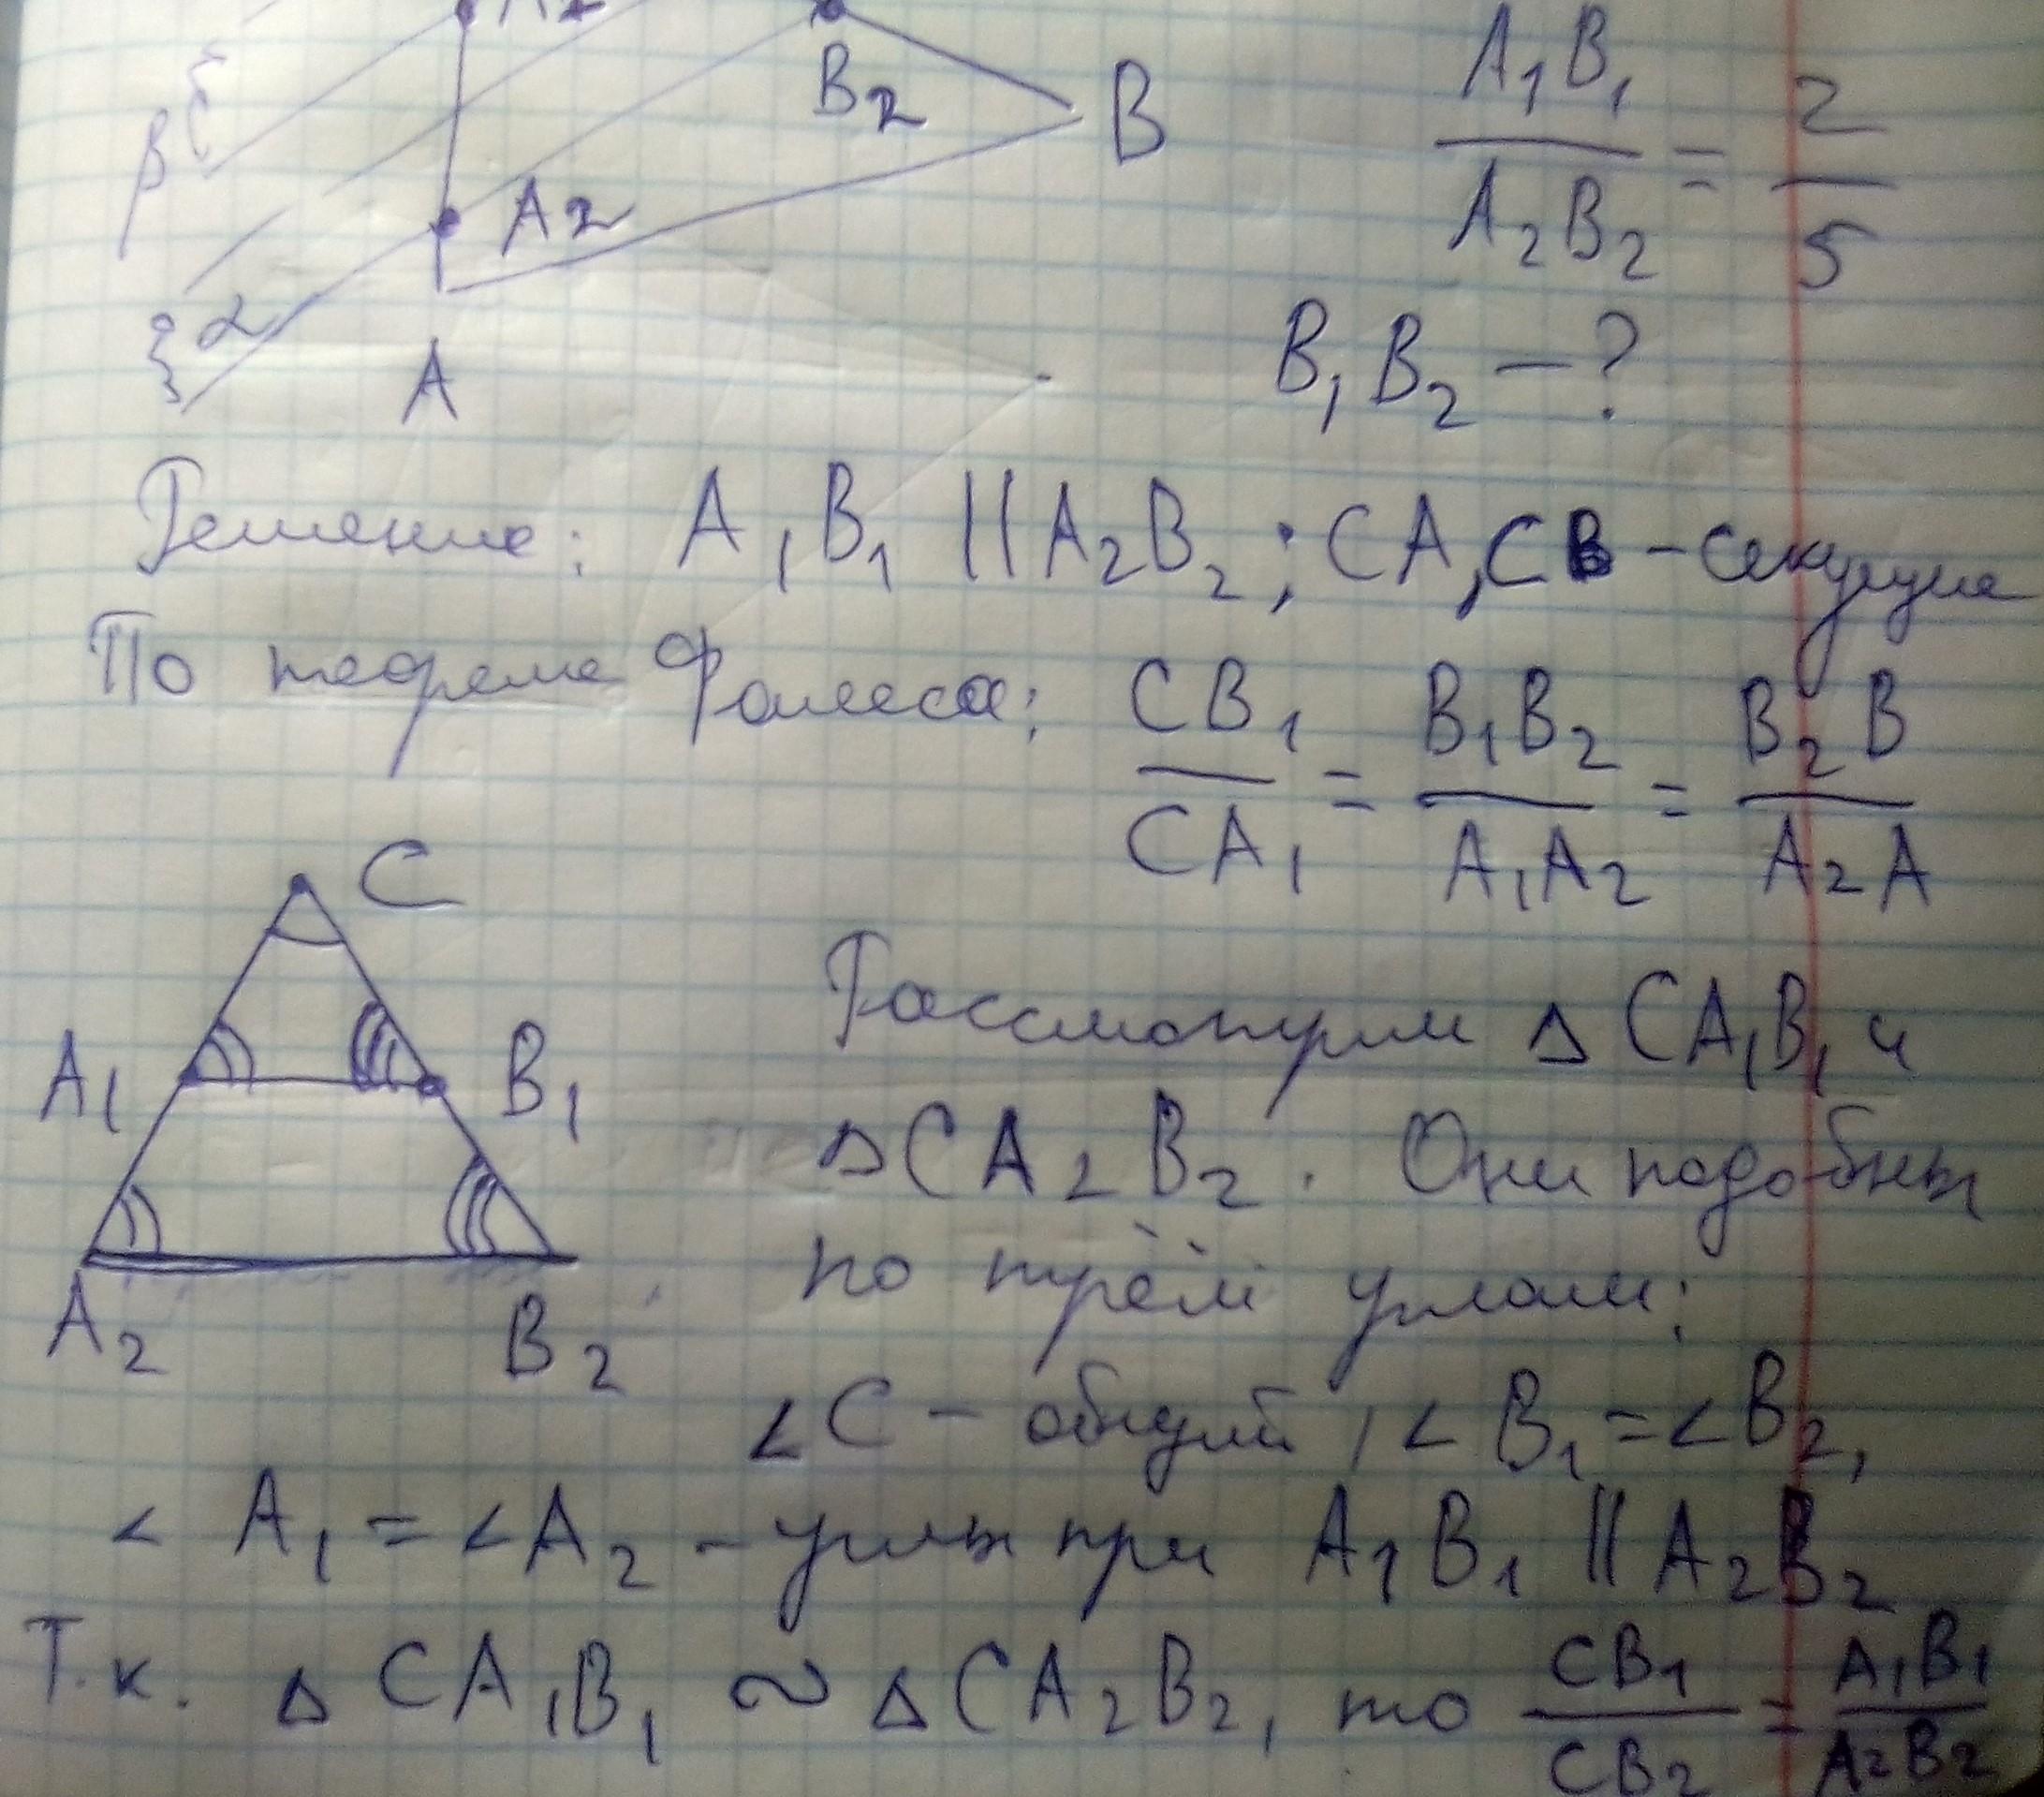 A2
β
B2
B
A1B1 / A2B2 = 2 / 5
A2
α
A
B1B2 – ?
Решение: A1B1 || A2B2 ; CA, CB – секущие
По теореме Фалеса: CB1 / CA1 = B1B2 / A1A2 = B2B / A2A
C
Рассмотрим Δ CA1B1 и
A1
B1
Δ CA2B2. Они подобны
по трём углам:
A2
B2
∠C – общий, ∠B1 = ∠B2,
∠A1 = ∠A2 – углы при A1B1 || A2B2
Т.к. Δ CA1B1 ~ Δ CA2B2, то CB1 / CB2 = A1B1 / A2B2